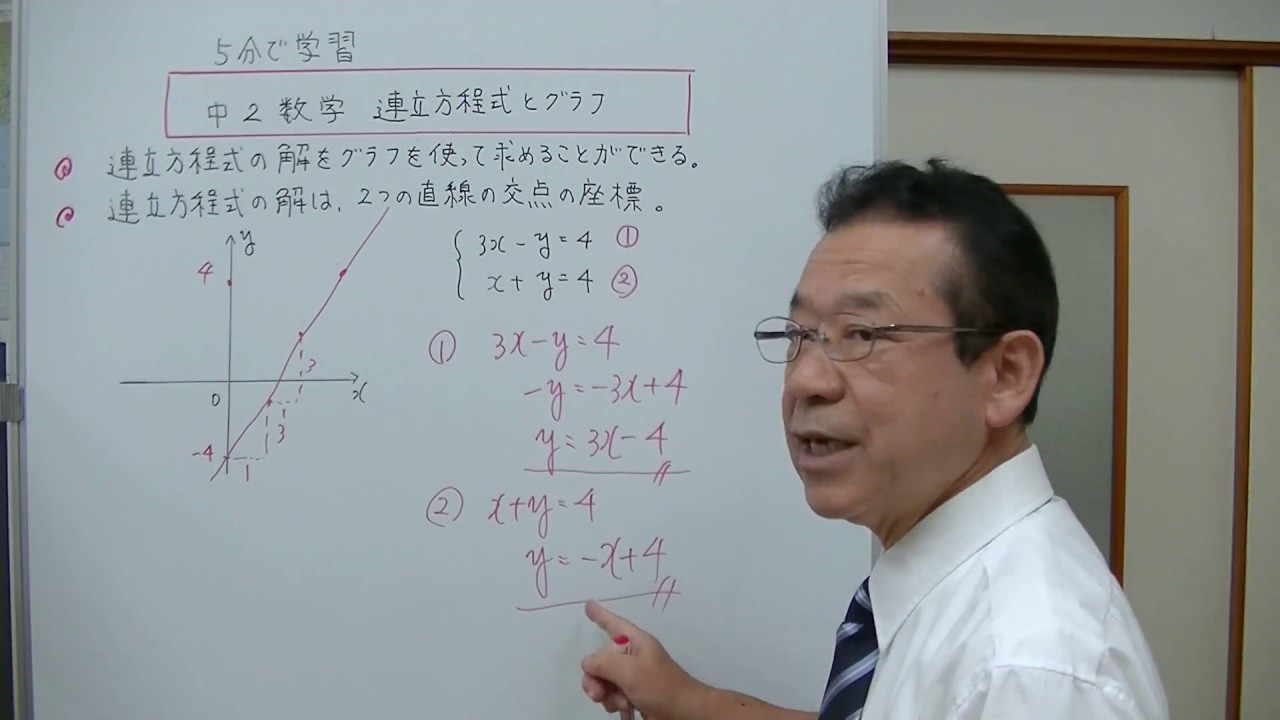 5分で学習
中2数学 連立方程式とグラフ
連立方程式の解をグラフを使って求めることができる。
連立方程式の解は、2つの直線の交点の座標。
y
4
0
x
-4
1
3
3
3x-y=4 ①
x+y=4 ②
① 3x-y=4
-y=-3x+4
y=3x-4
② x+y=4
y=-x+4